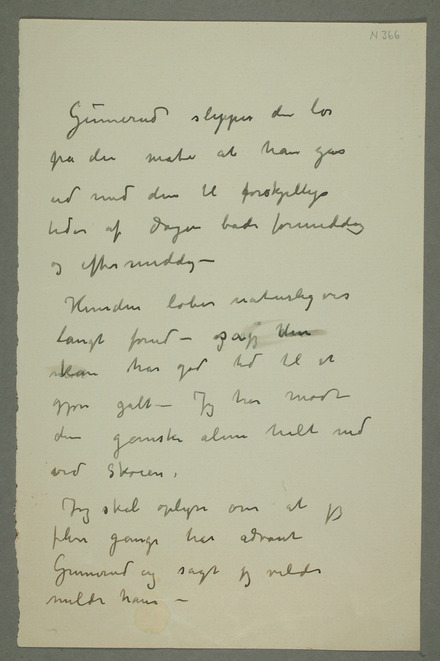 N 366
Gunnerud slipper den løs
på den måte at han går
ud med den til forskjellige
tider af dagen både formiddag
og eftermiddag –
Hunden løber naturligvis
langt forud – og
har god tid til at
gjøre galt – Jeg har mødt
den ganske alene helt ned
ved Skøien.
Jeg skal oplyse om at jeg
flere gange har advart
Gunnerud og sagt jeg vilde
melde ham –